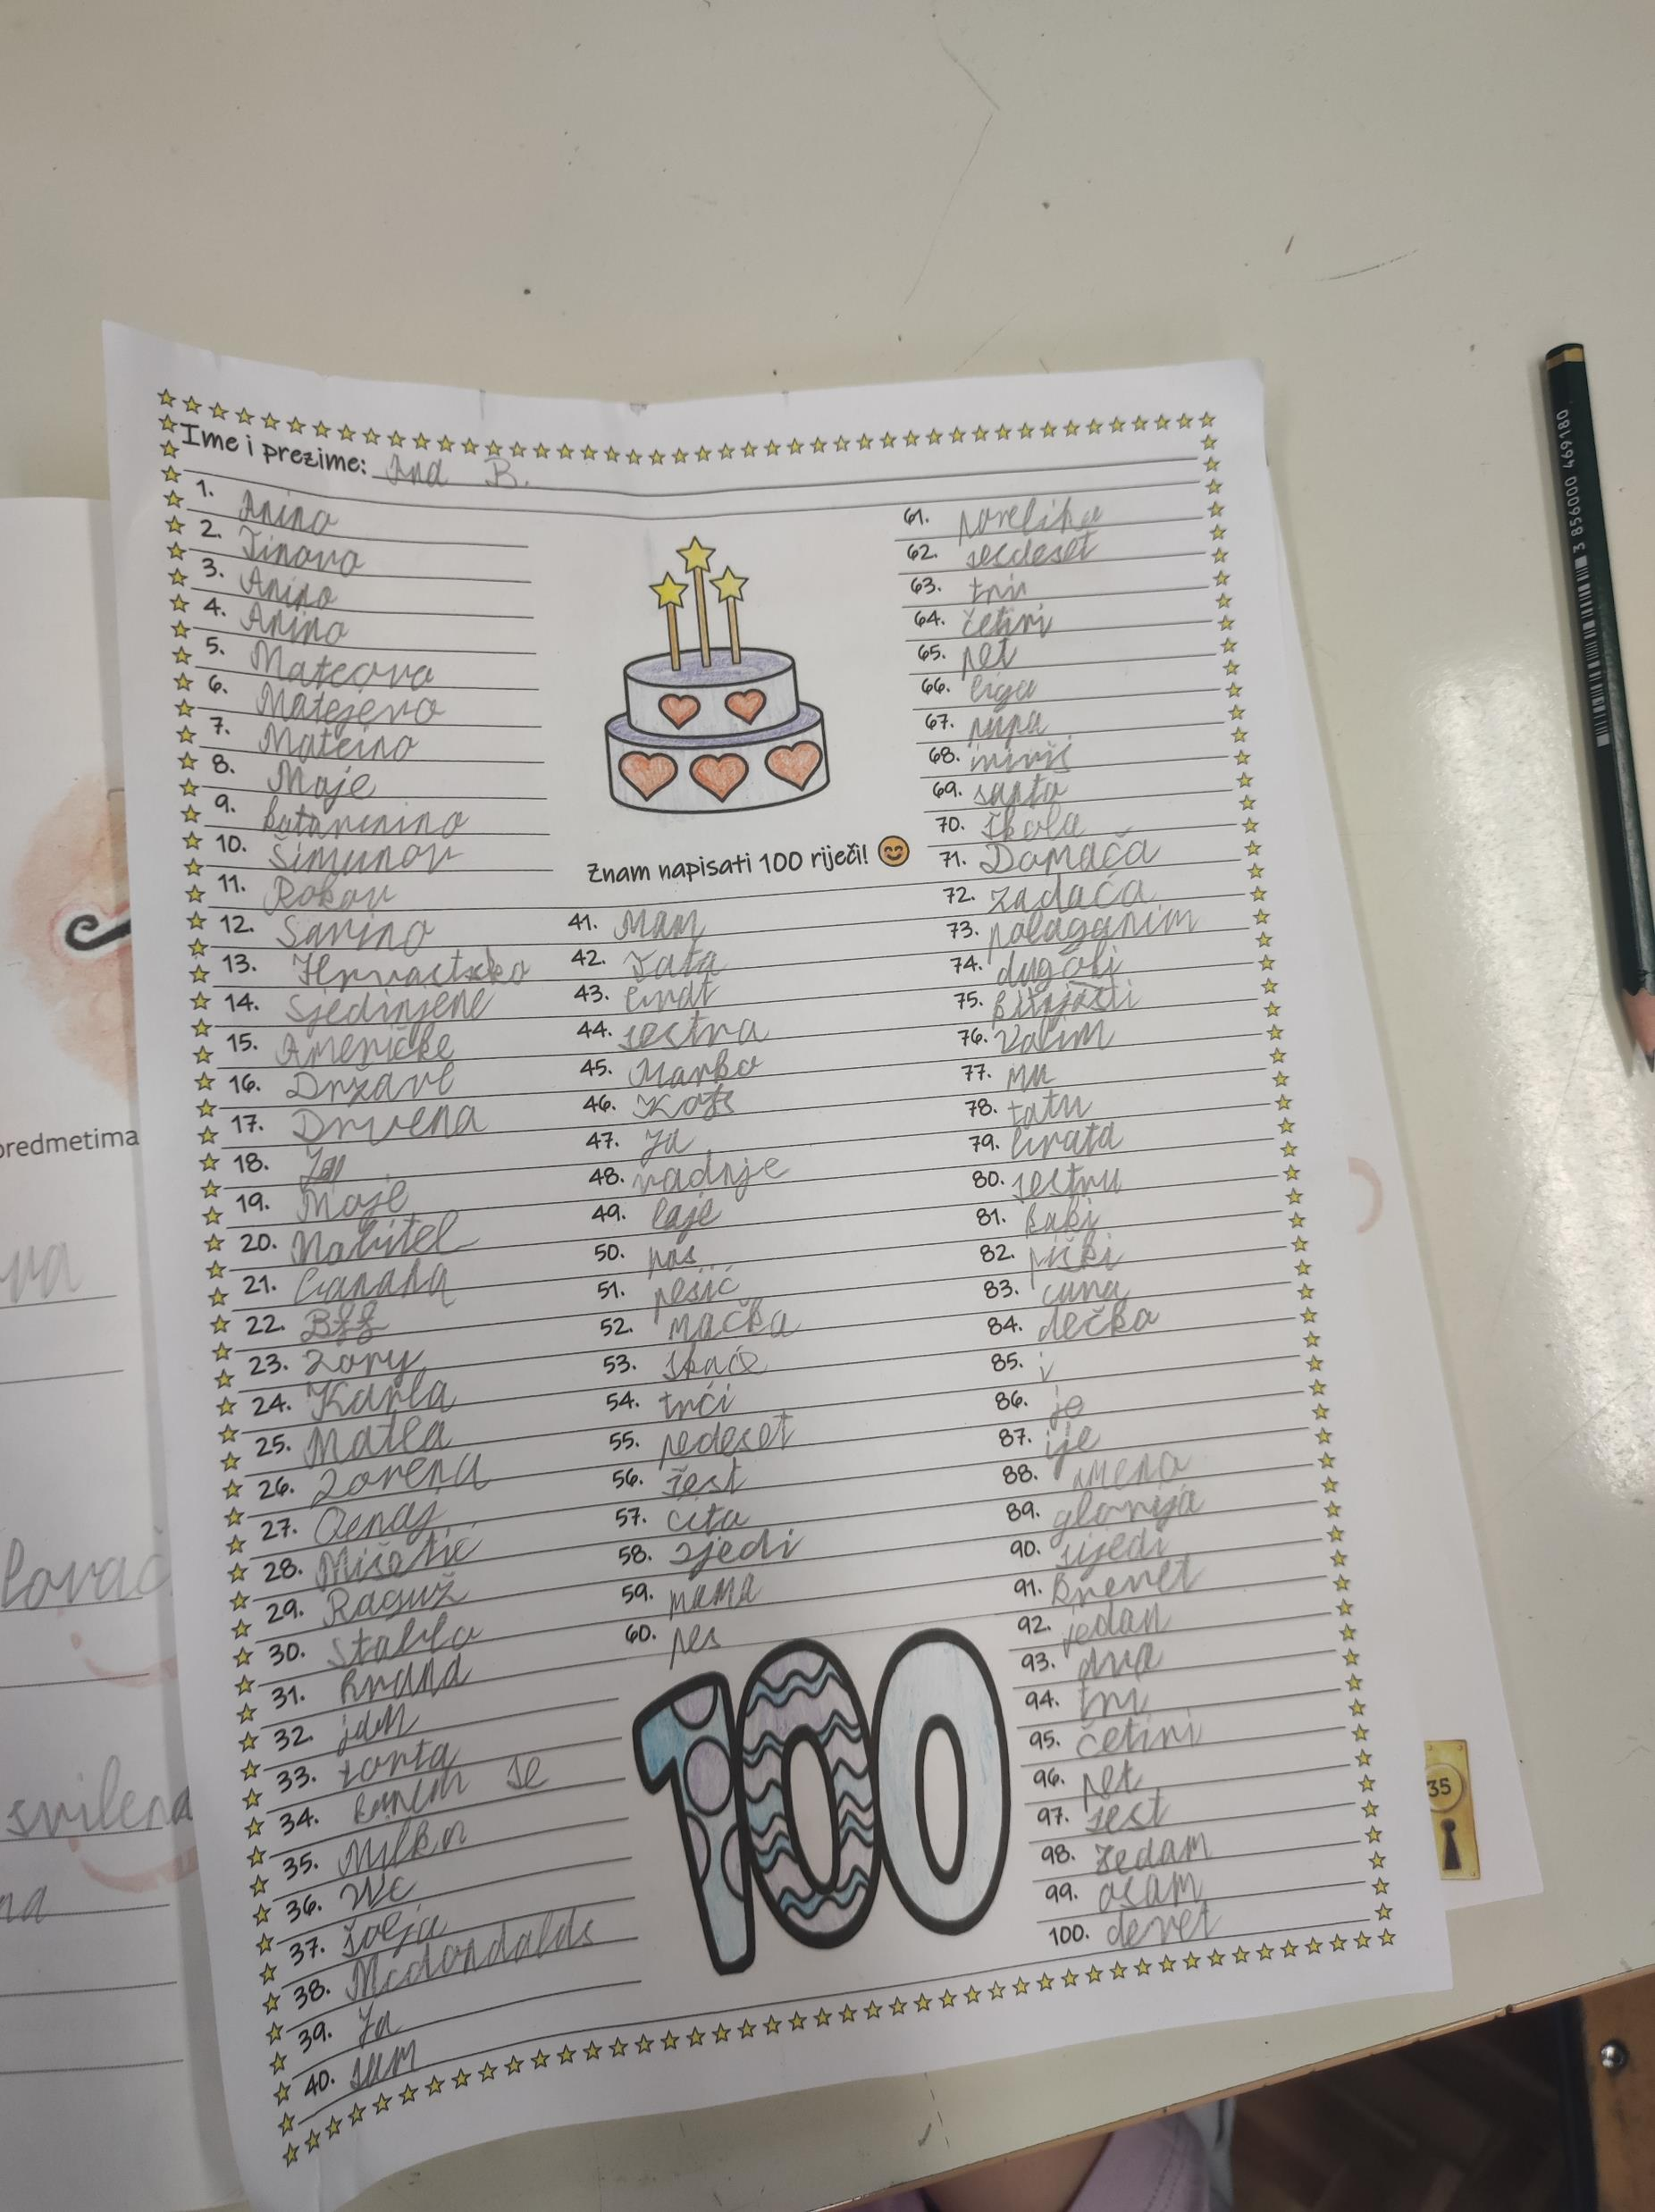 Ime i prezime: Ana B.
1. Anina
2. Tinova
3. Anina
4. Anina
5. Mateova
6. Matejeva
7. Mateina
8. Moje
9. Katarinina
10. Šimunov
11. Rokov
12. Sarina
13.
14. Sjedinjene
15. Američke
16. Države
17. Drvena
18.
19. Moje
20.
21. Banana
22. Bff
23. Lory
24. Karla
25. Matea
26. Lorena
27.
28. Mišetić
29. Raguž
30. Stablo
31. hrana
32. idem
33. torta
34. se
35. Milka
36. Wc
37. Šolja
38. Mcdondalds
39. Ja
40. sam
Znam napisati 100 riječi!
41. Mam
42. Tata
43.
44. sestra
45. Marko
46.
47. ja
48. radnje
49. laje
50. pas
51. pesić
52. mačka
53. skače
54. trči
55. pedeset
56. šest
57. čita
58. sjedi
59. mama
60. pes
61.
62. sesdeset
63. tri
64. četiri
65. pet
66. liga
67. pupa
68. miriš
69.
70. škola
71. Domaća
72. zadaća
73.
74.
75.
76. Volim
77. mu
78. tatu
79. brata
80. sestru
81.
82. piški
83. cura
84. dečko
85. i
86. je
87. ije
88. imena
89. glorija
90. sijedi
91. Krevet
92. jedan
93. dva
94. tri
95. četiri
96. pet
97. šest
98. sedam
99. osam
100. devet
100
predmetima
va
lovač
svilena
na
35
3 856000 469180